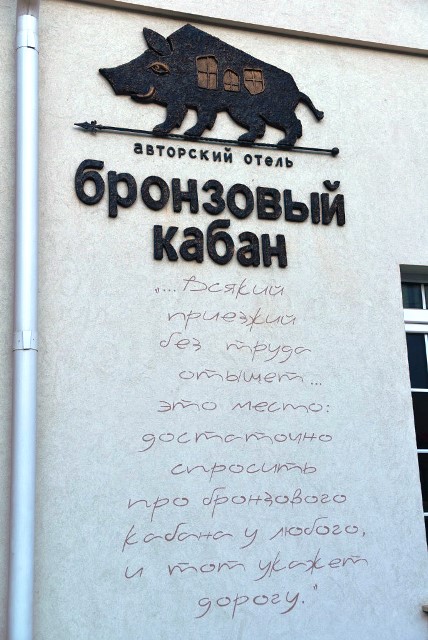 авторский отель
бронзовый
кабан
„...Всякий
приезжий
без труда
отыщет...
это место:
достаточно
спросить
про бронзового
кабана у любого,
и тот укажет
дорогу."